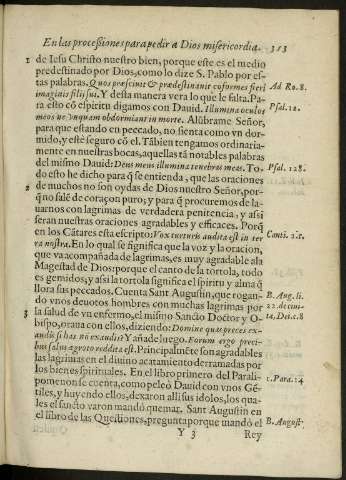 En las procesiones para pedir a Dios misericordia. 313
1 de Iesu Christo nuestro bien, porque este es el medio
predestinado por Dios, como lo dize S. Pablo por es-
tas palabras. Quos præsciuit & prædestinauit coformes fieri Ad Ro. 8.
imaginis filij sui. Y desta manera vera lo que le falta. Pa-
ra esto cō espiritu digamos con Dauid. Illumina oculos Psal. 12.
meos ne vnquam obdormiam in morte. Alūbrame Señor,
para que estando en peccado, no sienta como vn dor-
mido, y estè seguro cō el. Tābien tengamos ordinaria-
mente en nuestras bocas, aquellas tā notables palabras
del mismo Dauid: Deus meus illumina tenebras meas. To- Psal. 128.
do esto he dicho para q̄ se entienda, que las oraciones
2 de muchos no son oydas de Dios nuestro Señor, por-
q̄ no salē de coraçon puro, y para q̄ procuremos de la-
uarnos con lagrimas de verdadera penitencia, y assi
seran nuestras oraciones agradables y efficaces. Porq̄
en los Cātares esta escripto: Vox turturis audita est in ter Canti. 2.
ra nostra. En lo qual se significa que la voz y la oracion,
que va acompañada de lagrimas, es muy agradable ala
Magestad de Dios: porque el canto de la tortola, todo
es gemidos, y assi la tortola significa el spiritu y alma q̄
llora sus peccados. Cuenta Sant Augustin, que rogan- B. Aug. li.
do vnos deuotos hombres con muchas lagrimas por 22. de ciui-
3 la salud de vn enfermo, el mismo Sancto Doctor y O- ta. Dei c. 8
bispo, oraua con ellos, diziendo: Domine quas preces ex-
audis si has no exaudis? Y añade luego. Eorum ergo preci-
bus salus ægroto reddita est. Principalmēte son agradables
las lagrimas en el diuino acatamiento derramadas por
los bienes spirituales. En el libro primero del Parali- 1. Para. 14
pomenon se cuenta, como peleò Dauid con vnos Gē-
tiles, y huyendo ellos, dexaron alli sus idolos, los qua-
les el sancto varon mandò quemar. Sant Augustin en
el libro de las Questiones, pregunta porque mandò el B. August.
Y 3 Rey